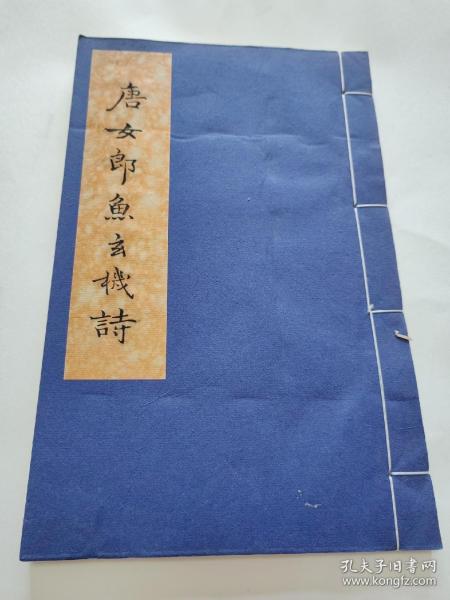 唐女郎魚玄機詩
孔夫子旧书网
www.kongfz.com